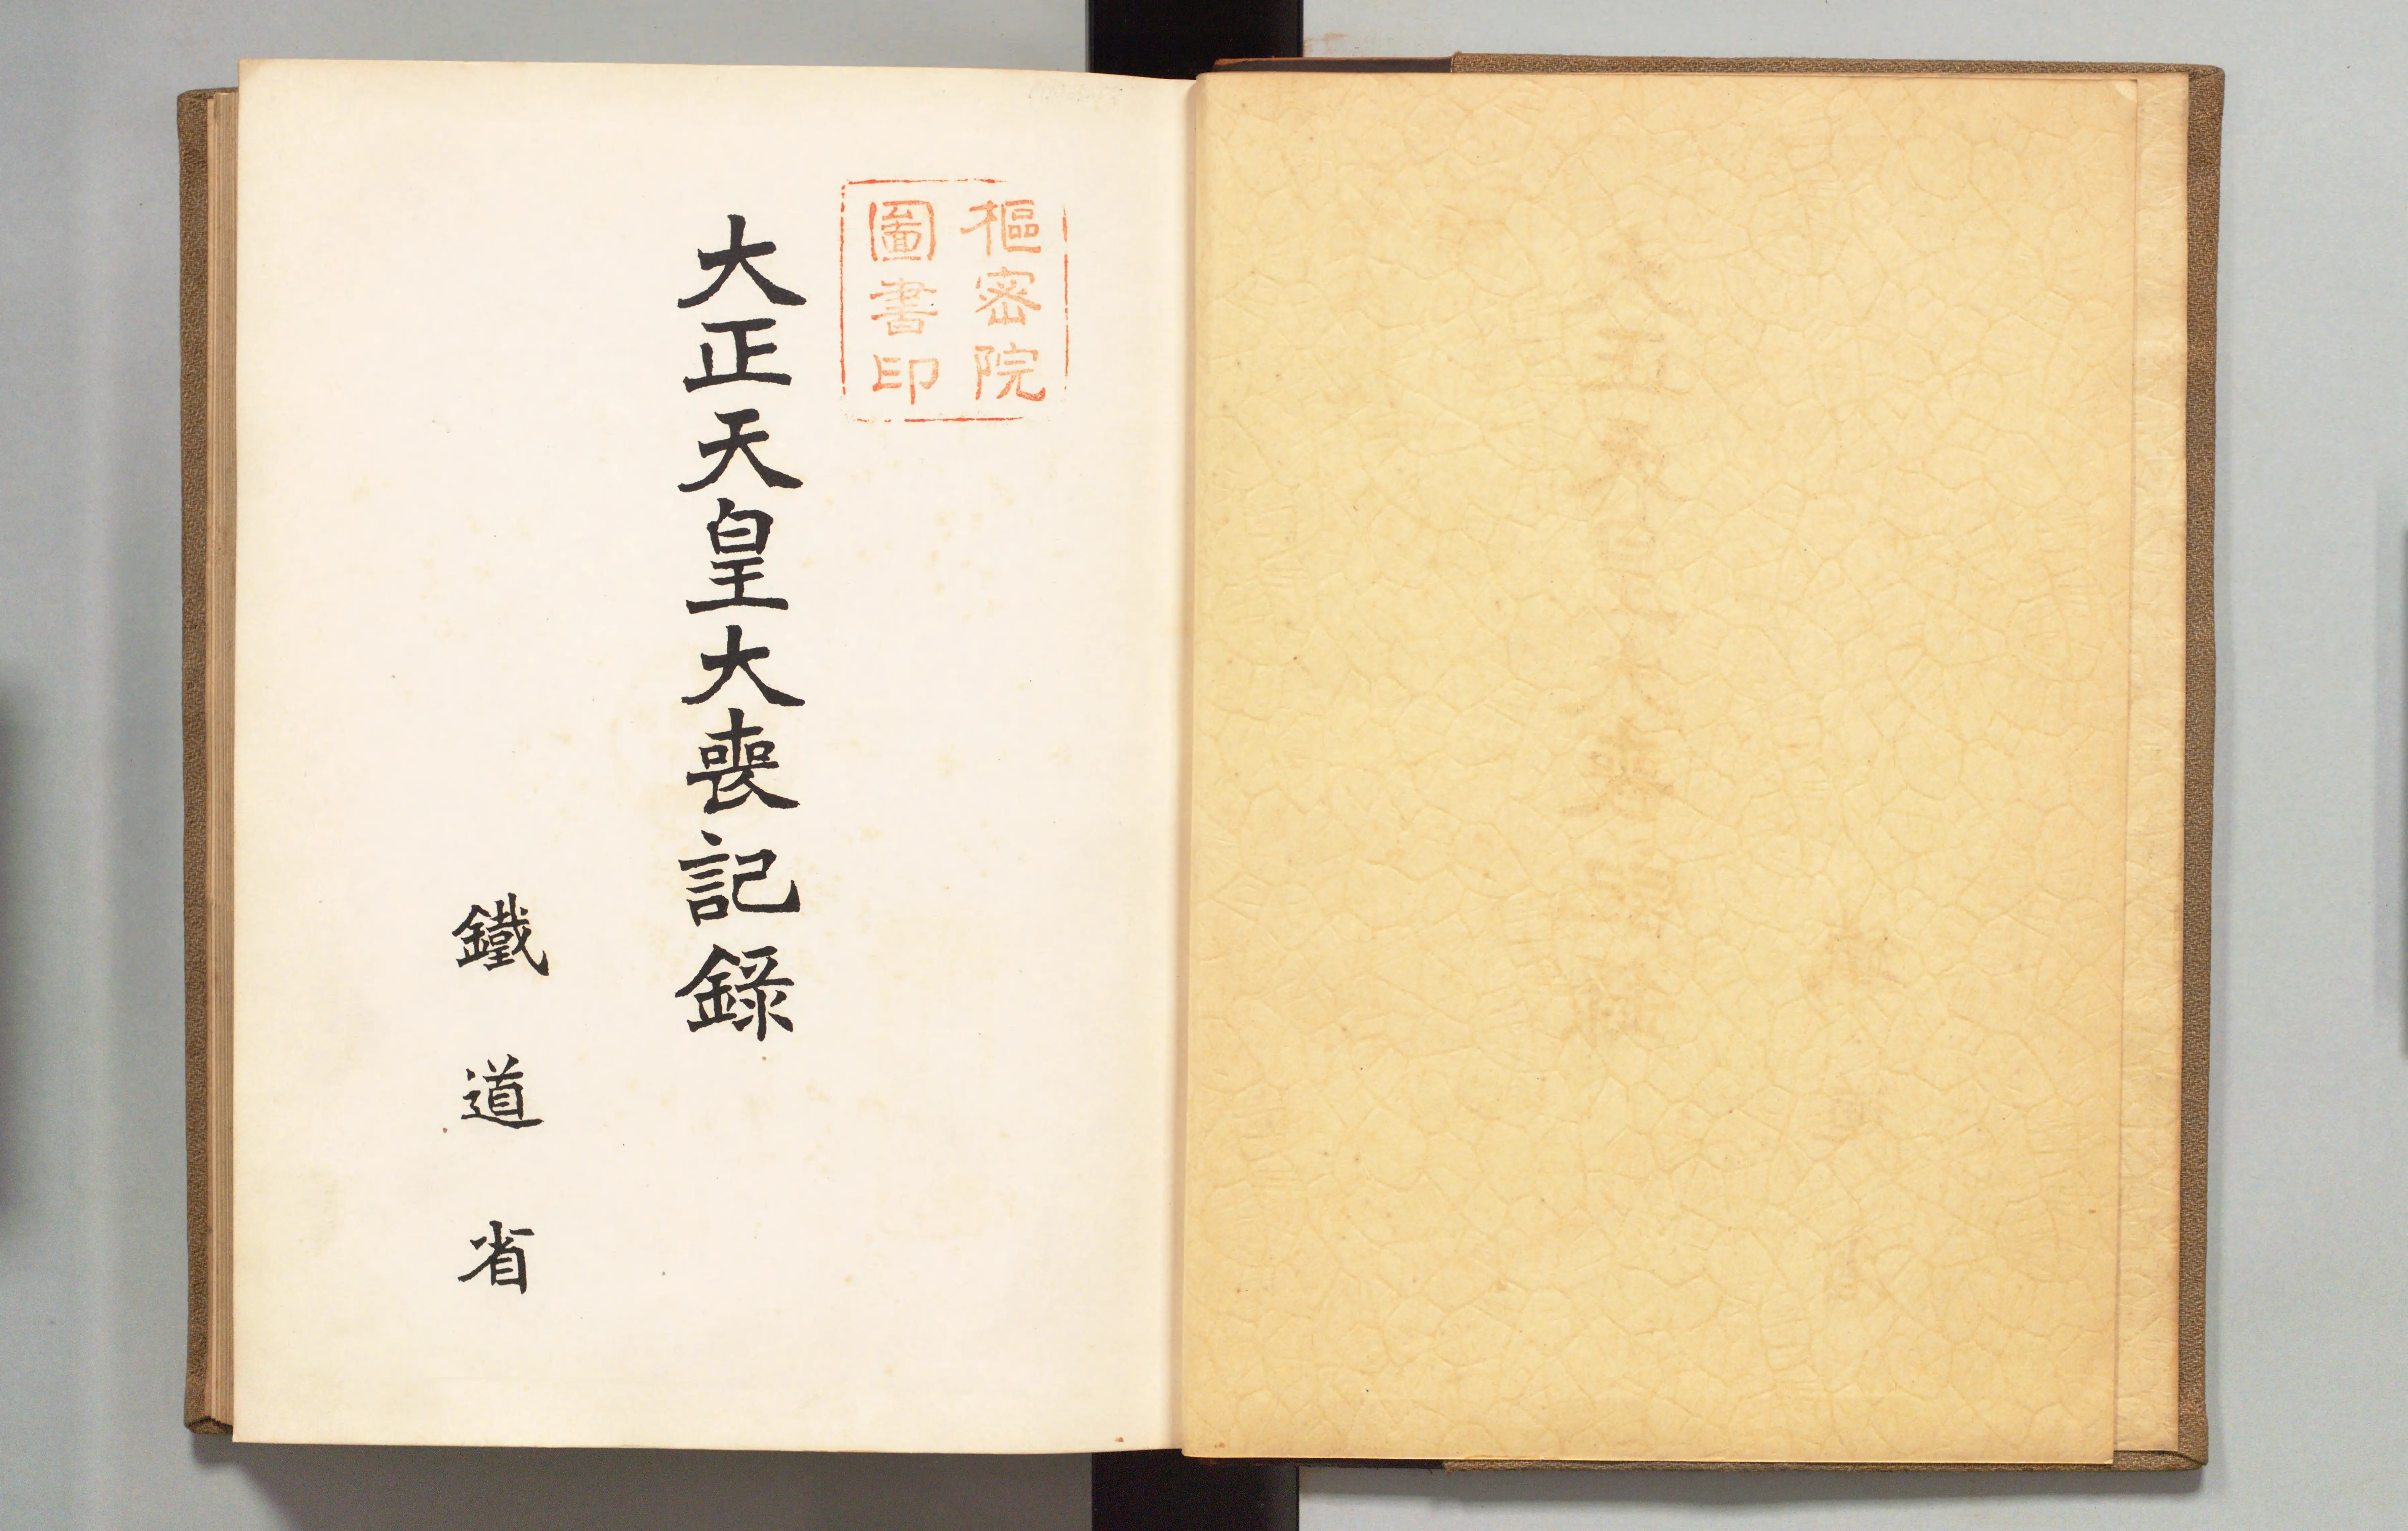 樞密院
圖書印
大正天皇大喪記錄
鐵道省